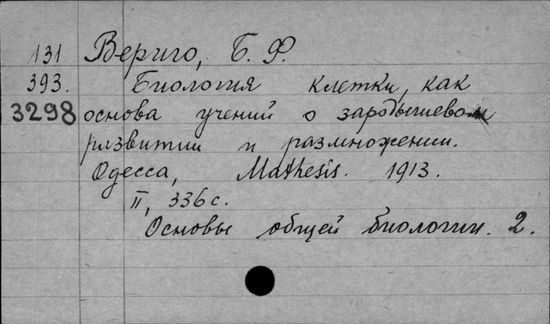 131 Вериго, Б. Ф.
393. Биология клетки, как
3298 основа учений о зародышевом
развитии и размножении.
Одесса, Mathesis. 1913.
II, 336 с.
Основы общей биологии. 2.